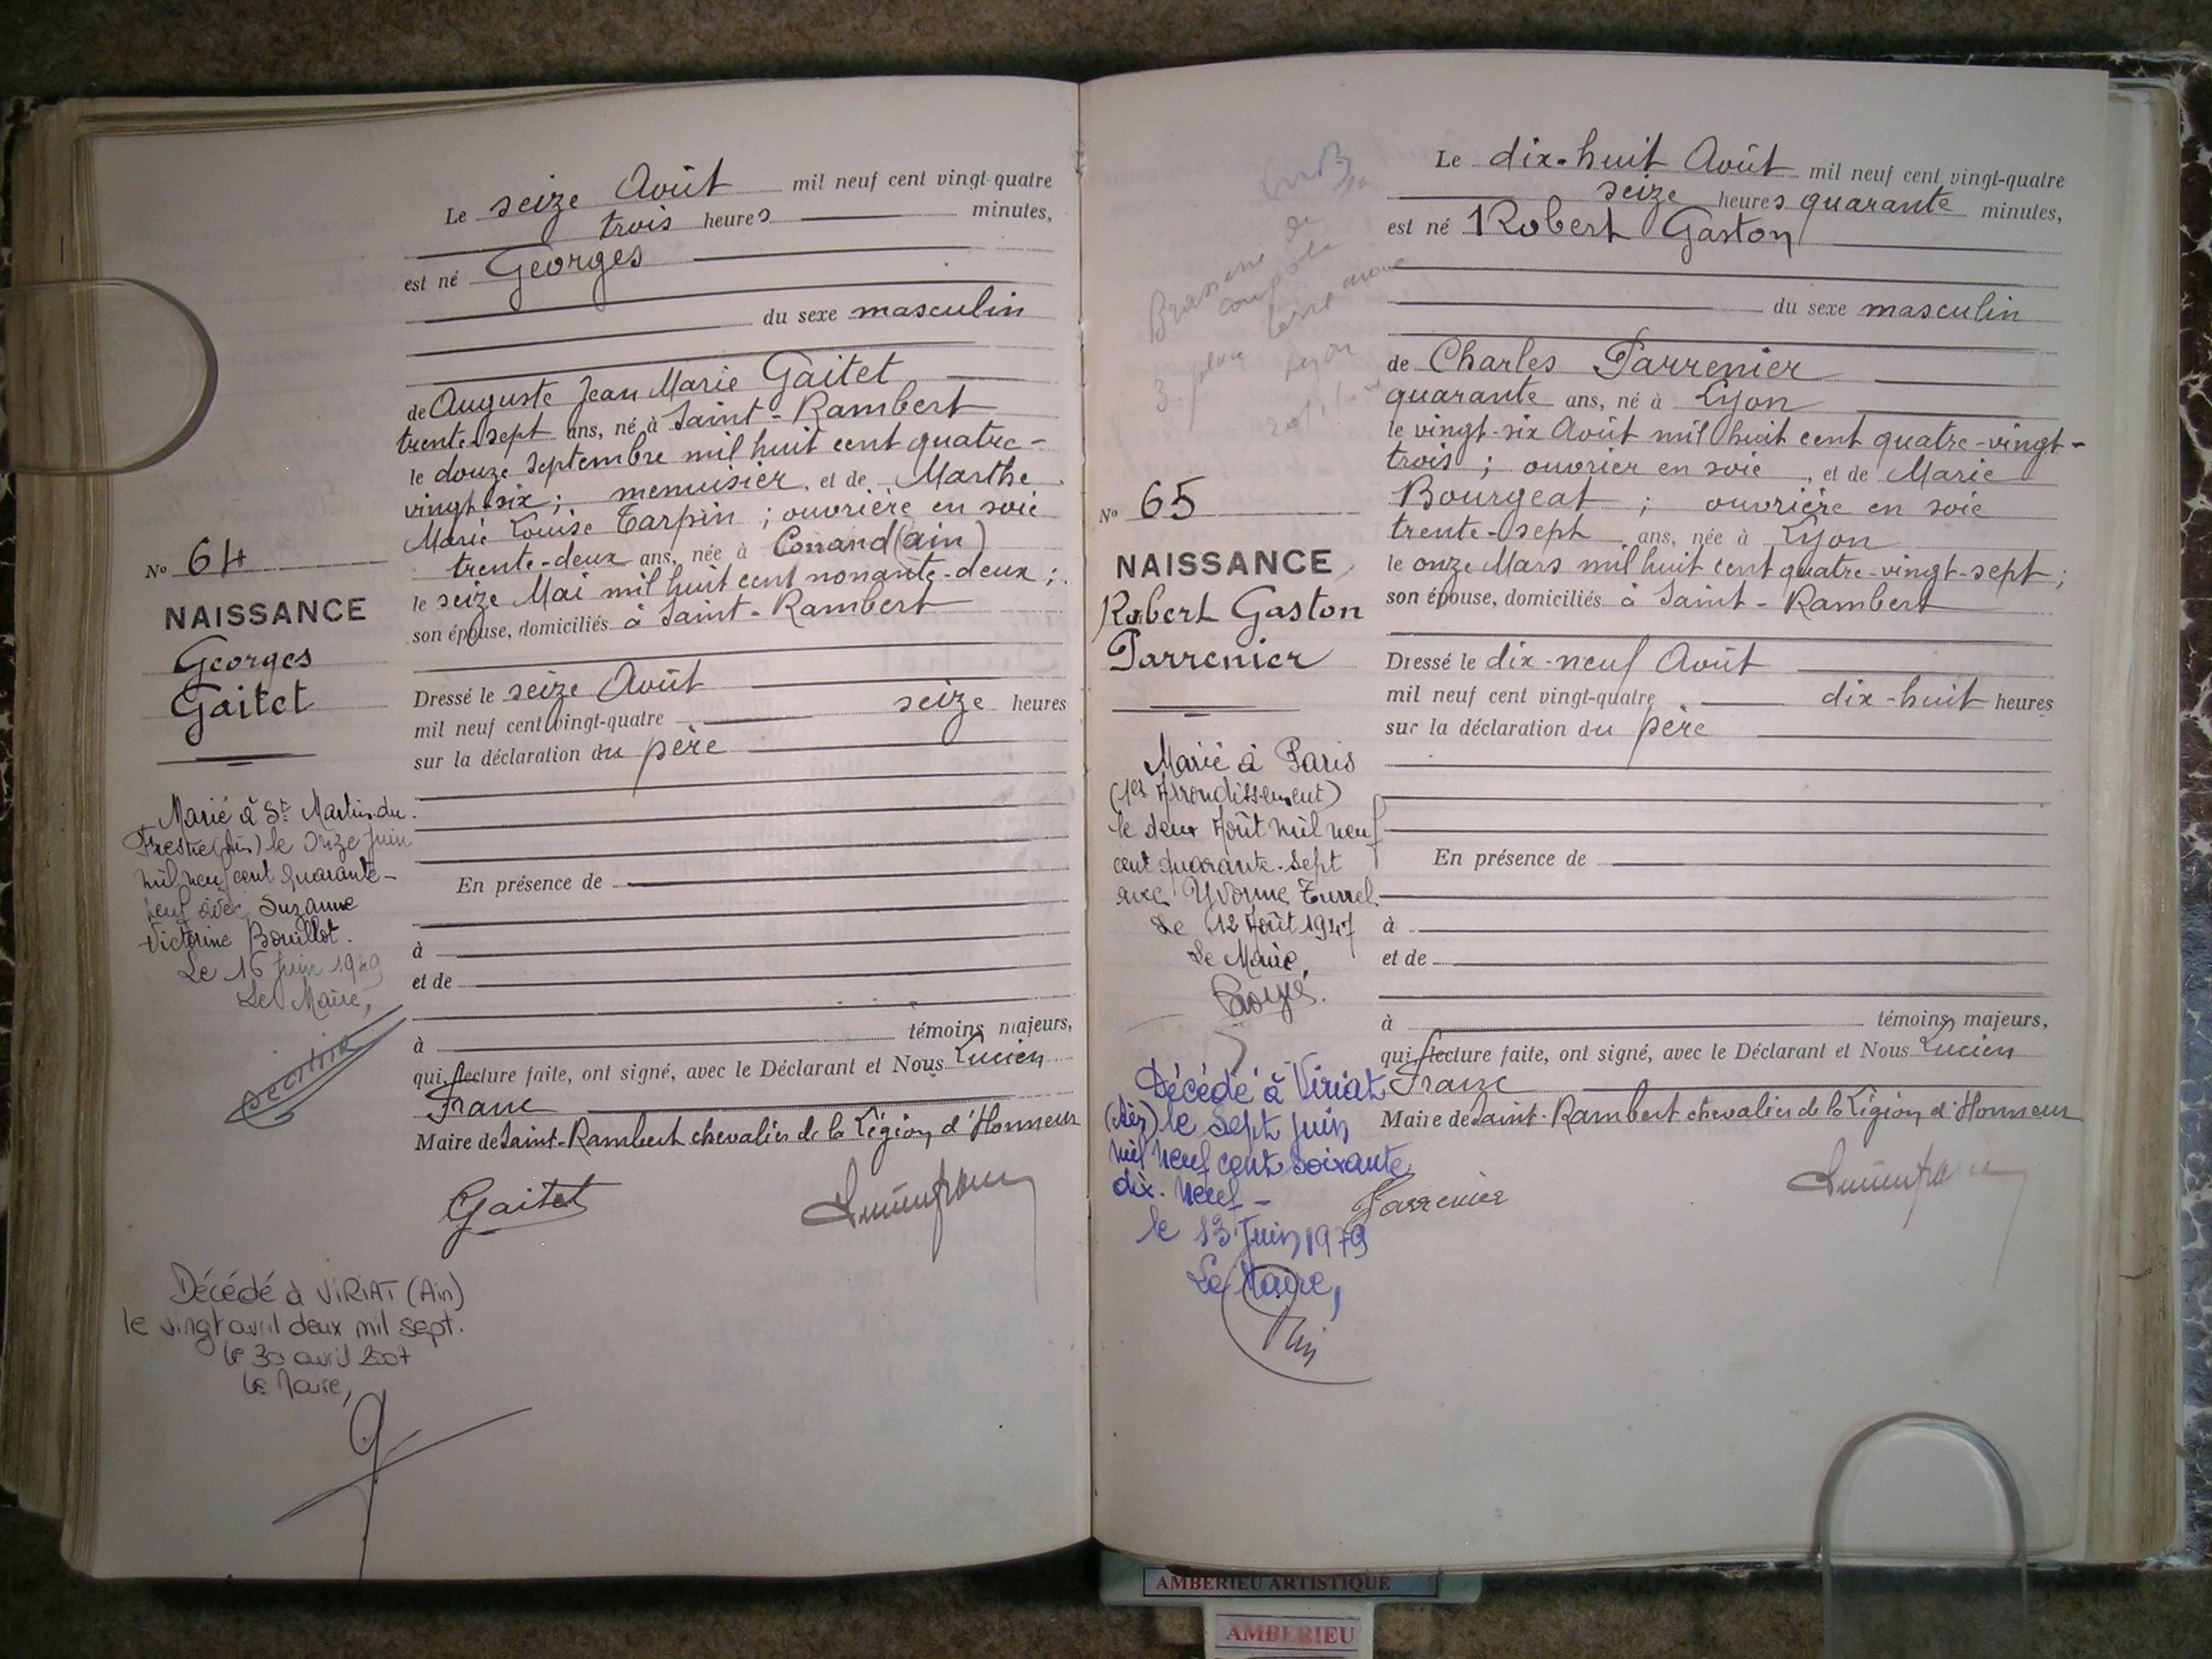 Le seize Août mil neuf cent vingt-quatre
trois heures minutes,
est né Georges
du sexe masculin
de Auguste Jean Marie Gaitet
trente-sept ans, né à Saint-Rambert
le douze Septembre mil huit cent quatre-
vingt-six; menuisier, et de Marthe
Marie Louise Tarpin; ouvrière en soie
trente-deux ans, née à Conand (ain)
le seize Mai mil huit cent nonante-deux;
son épouse, domiciliés à Saint-Rambert
No 64
NAISSANCE
Georges
Gaitet
Dressé le seize Août
mil neuf cent vingt-quatre seize heures
sur la déclaration du père
En présence de
à
et de
à témoins majeurs,
qui, lecture faite, ont signé, avec le Déclarant et Nous Lucien
Franc
Maire de Saint-Rambert chevalier de la Légion d'Honneur
Gaitet
Marié à St Martin-du-
Fresne (Ain) le onze Juin
mil neuf cent quarante-
neuf avec Suzanne
Victorine Bouillot.
Le 16 Juin 1949
Le Maire,
Décédé à VIRIAT (Ain)
le vingt avril deux mil sept.
le 30 avril 2007
Le Maire,
Le dix-huit Août mil neuf cent vingt-quatre
seize heures quarante minutes,
est né Robert Gaston
du sexe masculin
de Charles Parrenier
quarante ans, né à Lyon
le vingt-six Août mil huit cent quatre-vingt-
trois; ouvrier en soie, et de Marie
Bourgeat; ouvrière en soie
trente-sept ans, née à Lyon
le onze Mars mil huit cent quatre-vingt-sept;
son épouse, domiciliés à Saint-Rambert
No 65
NAISSANCE
Robert Gaston
Parrenier
Dressé le dix-neuf Août
mil neuf cent vingt-quatre dix-huit heures
sur la déclaration du père
En présence de
à
et de
à témoins majeurs,
qui, lecture faite, ont signé, avec le Déclarant et Nous Lucien
Franc
Maire de Saint-Rambert chevalier de la Légion d'Honneur
Parrenier
Marié à Paris
(1er Arrondissement)
le deux Août mil neuf
cent quarante-sept
avec Yvonne Turrel
Le 12 Août 1947
Le Maire,
Décédé à Viriat
(Ain) le sept juin
mil neuf cent soixante
dix-neuf-
le 13 Juin 1979
Le Maire,
AMBERIEU ARTISTIQUE
AMBERIEU